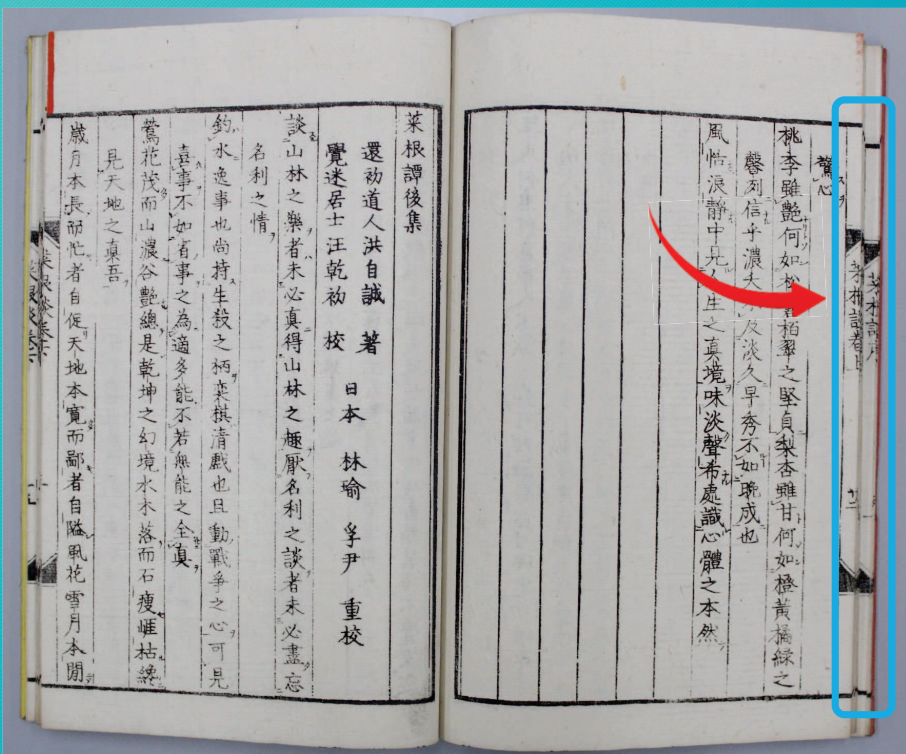 菜根譚卷上
廿二
驚心
桃李雖艷何如松蒼栢翠之堅貞梨杏雖甘何如橙黃橘綠之
馨列信乎濃夭不及淡久早秀不如晚成也
風恬浪靜中見人生之真境味淡聲希處識心體之本然
菜根譚後集
還初道人洪自誠 著
覺迷居士汪乾初 校
日本 林瑜 孚尹 重校
談山林之樂者未必真得山林之趣厭名利之談者未必盡忘
名利之情
釣水逸事也尚持生殺之柄奕棋清戲也且動戰爭之心可見
喜事不如省事之為適多能不若無能之全真
鶯花茂而山濃谷艷總是乾坤之幻境水木落而石瘦崕枯纔
見天地之真吾
歲月本長而忙者自促天地本寬而鄙者自隘風花雪月本閒